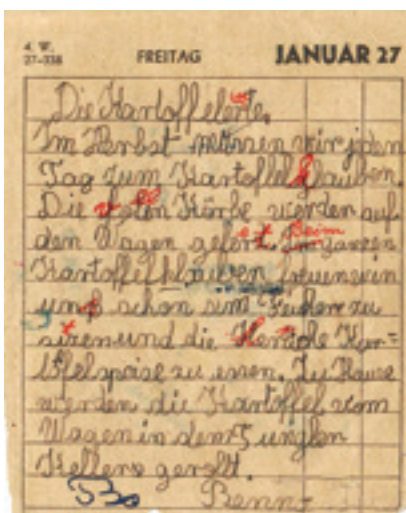 4. W.
27-338
FREITAG
JANUAR 27
Die Kartoffelernte.
Im Herbst müssen wir jeden
Tag zum Kartoffelklauben.
Die vollen Körbe werden auf
den Wagen gefert. Beim ganzen
Kartoffelklauben freuen wir
uns schon um Feuher zu
sitzen und die Kar=
toffelspeise zu essen. Zu Hause
werden die Kartoffel vom
Wagen in den
Kellere gerollt.
Benno